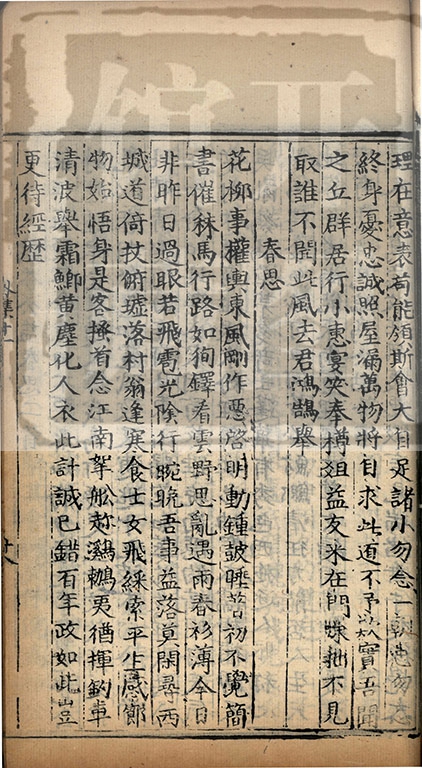 理在意表苟能領斯會大自足諸小勿念一朝患勿忘
終身憂忠誠照屋漏萬物將自求此道不予欺實吾聞
之丘群居行小惠宴笑奉樽俎益友來在門疎拙不見
取誰不聞此風去君鴻鵠舉
春思
花柳事權輿東風剛作惡啓明動鍾皷睡著初不覺簡
書催秣馬行路如徇鐸看雲野思亂遇雨春衫薄今日
非昨日過眼若飛雹光陰行晼晚吾事益落莫閑尋西
城道倚杖俯墟落村翁逢寒食士女飛綵索平生感節
物始悟身是客搔首念江南拏舩趂鸂鶒夷猶揮釣車
清波舉霜鯽黃塵化人衣此計誠已錯百年政如此豈
更待經歷
外集十一
十八